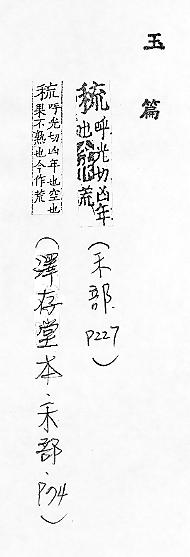 玉篇
𥝯呼光切凶年也今作荒
(禾部 P227)
𥝯呼光切凶年也空也果不熟也今作荒
(澤存堂本.禾部.P74)